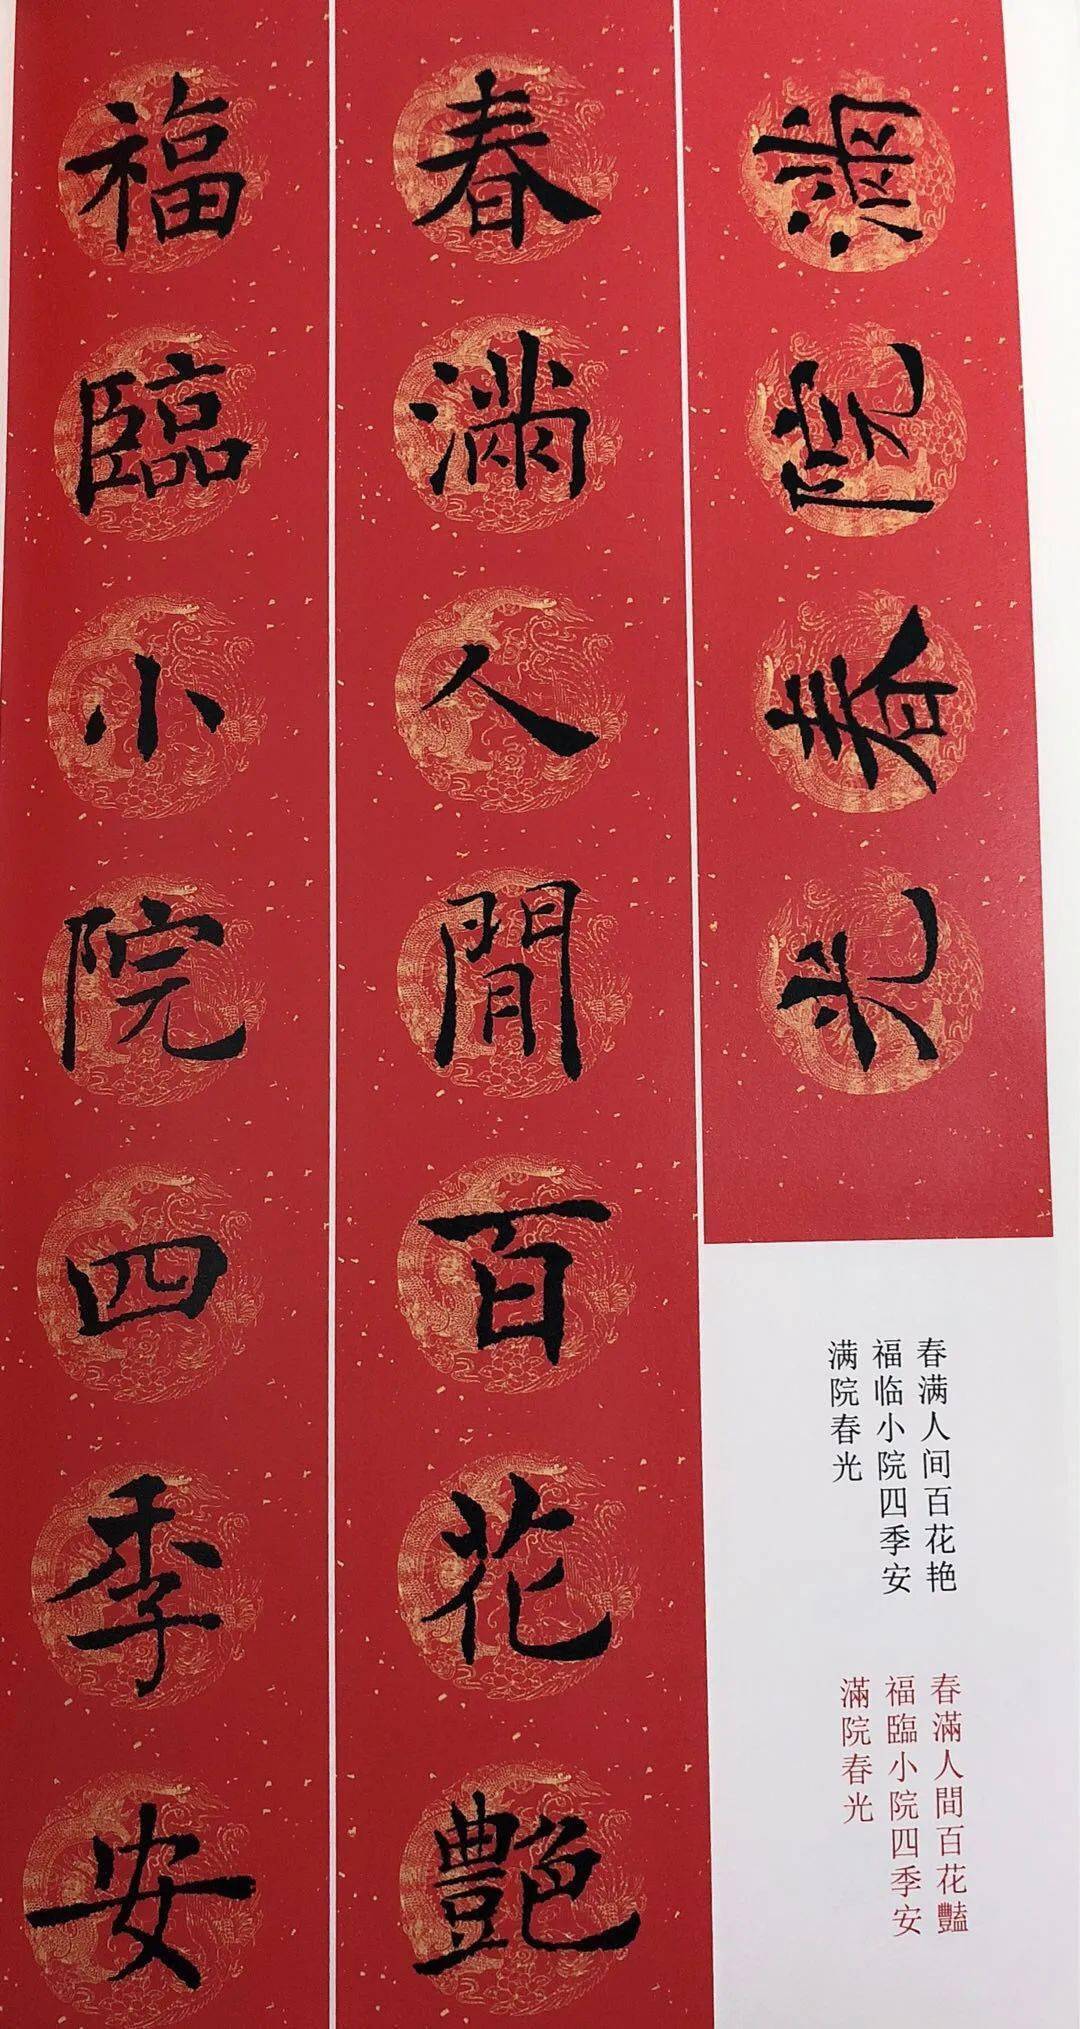 春滿人間百花艷
福臨小院四季安
滿院春光
春满人间百花艳
福临小院四季安
满院春光
春滿人間百花豔
福臨小院四季安
滿院春光